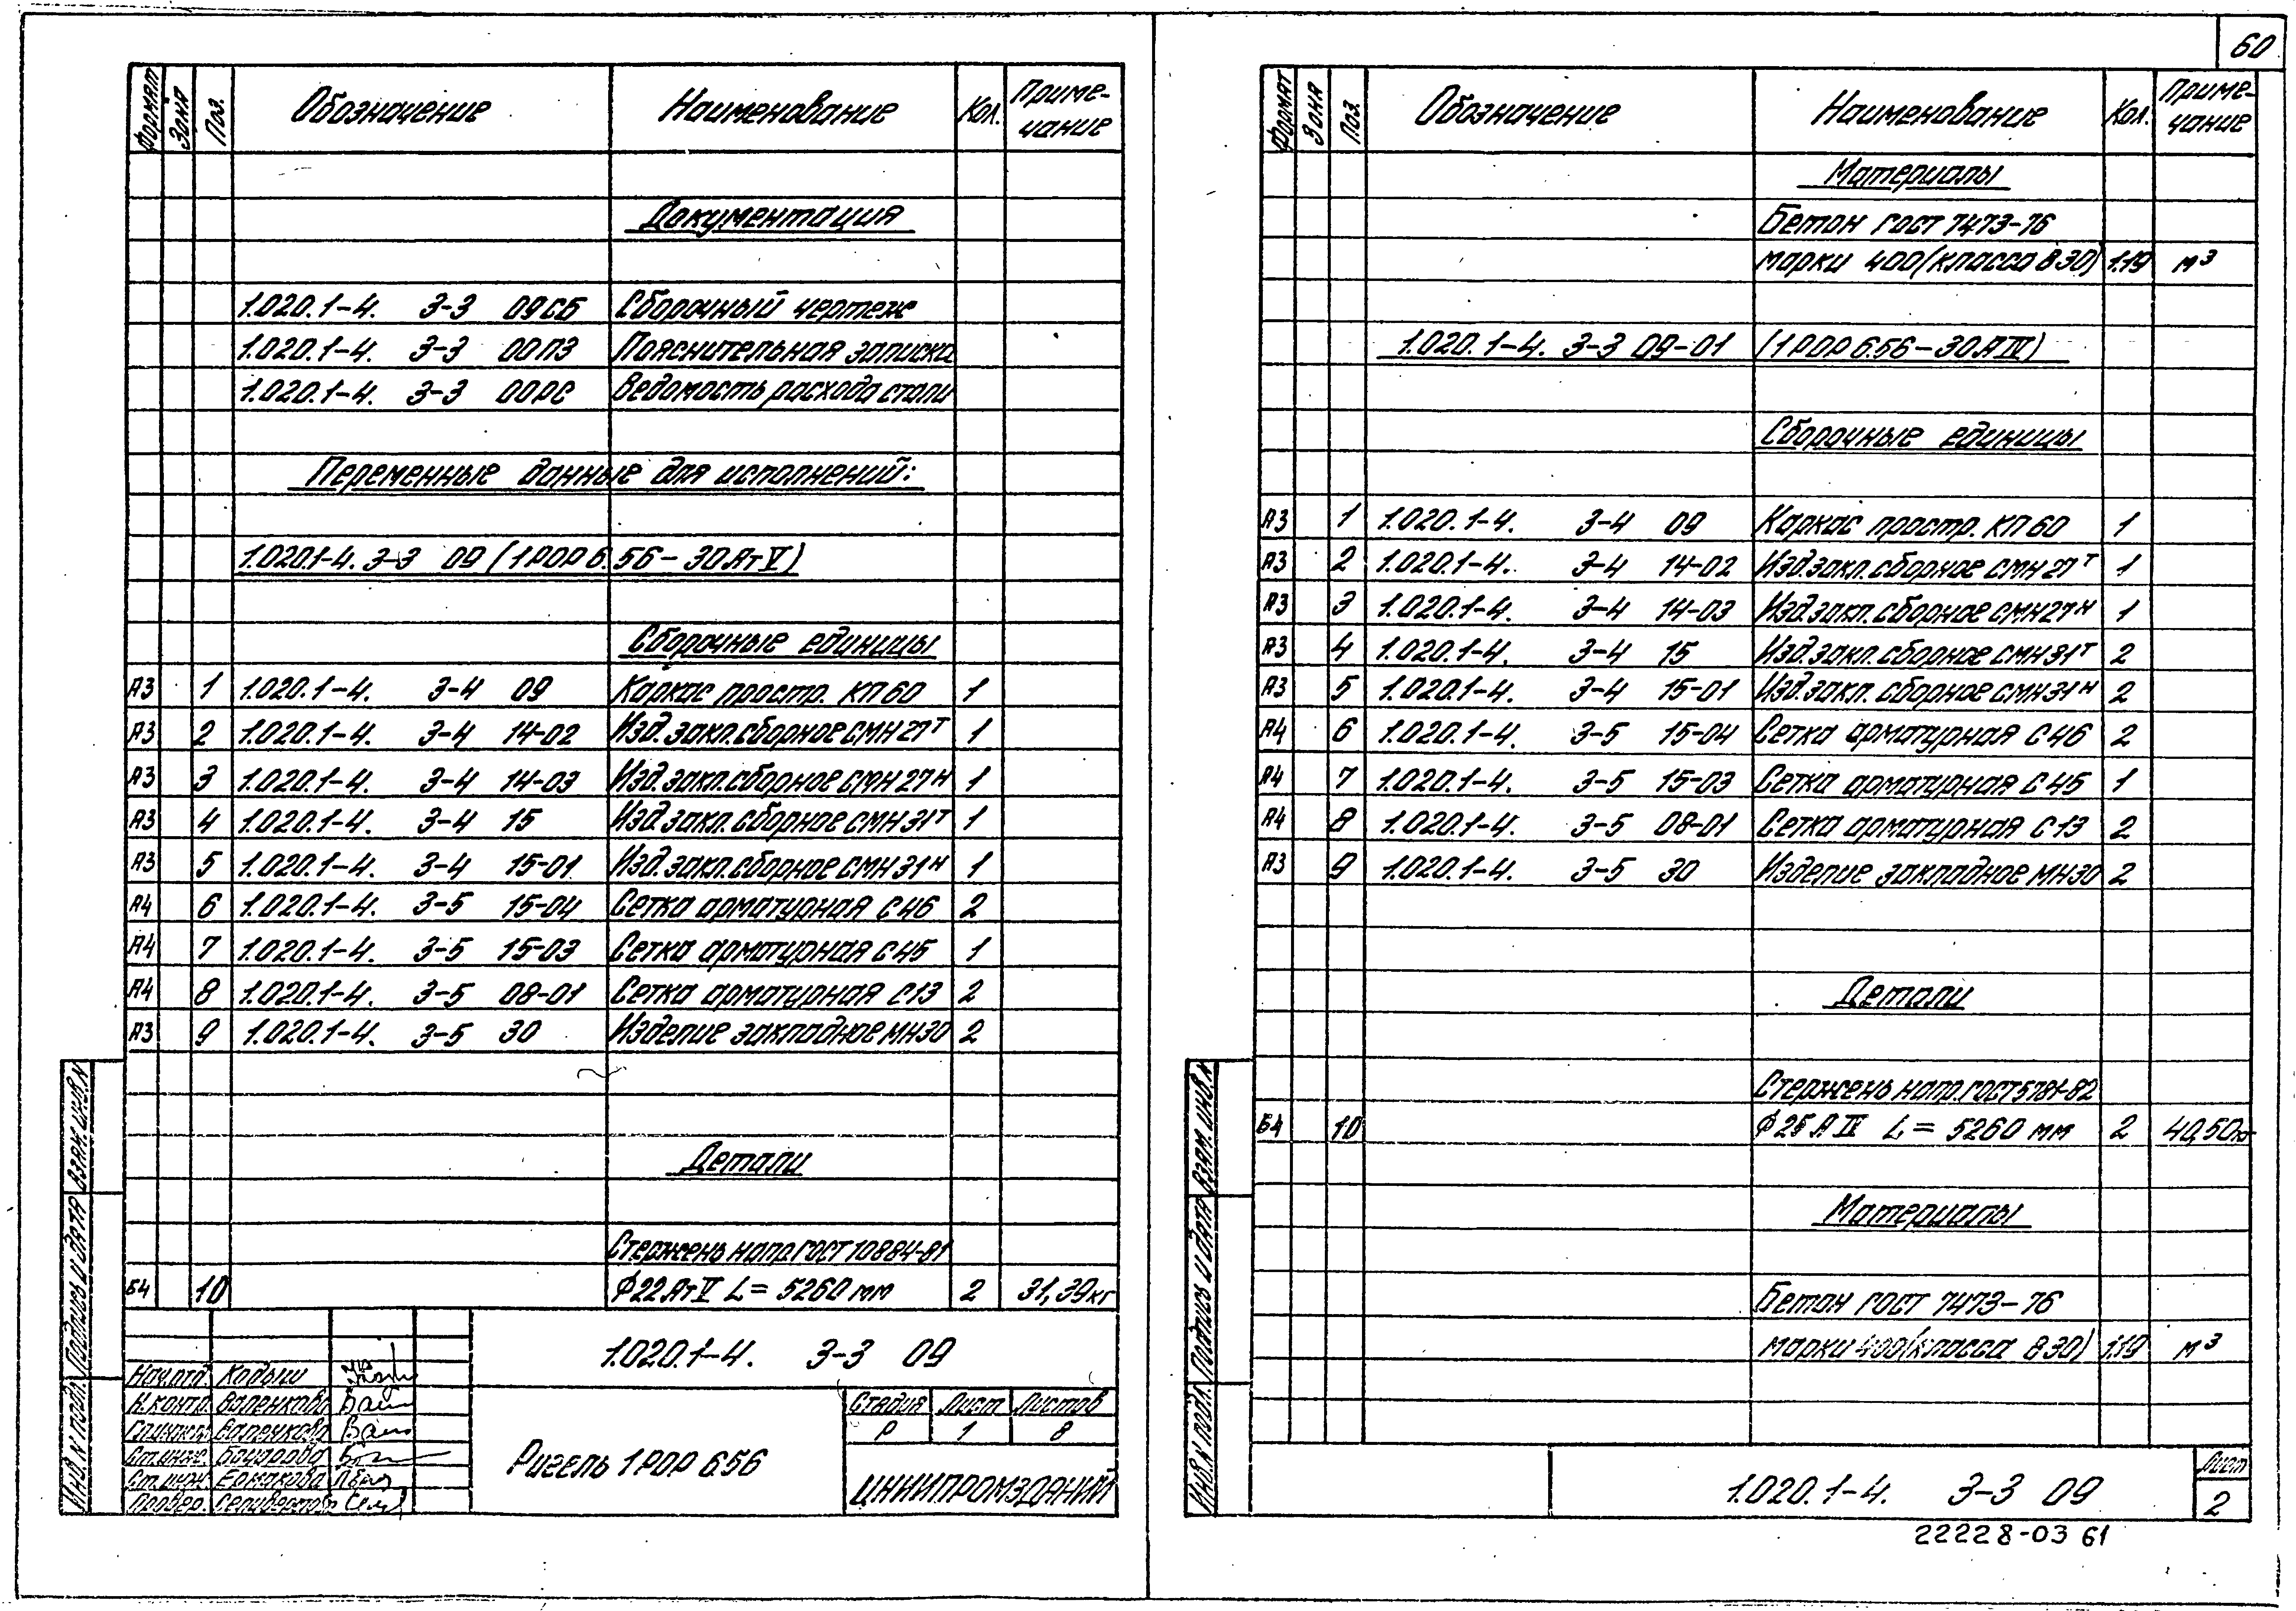 60
Формат Зона Поз. Обозначение Наименование Кол. Приме-
чание
Документация
1.020.1-4. 3-3 09СБ Сборочный чертеж
1.020.1-4. 3-3 00ПЗ Пояснительная записка
1.020.1-4. 3-3 00РС Ведомость расхода стали
Переменные данные для исполнений:
1.020.1-4. 3-3 09 (1РОР 6.56-30АтV)
Сборочные единицы
А3 1 1.020.1-4. 3-4 09 Каркас простр. КП60 1
А3 2 1.020.1-4. 3-4 14-02 Изд. закл. сборное СМН 27т 1
А3 3 1.020.1-4. 3-4 14-03 Изд. закл. сборное СМН 27н 1
А3 4 1.020.1-4. 3-4 15 Изд. закл. сборное СМН 31т 1
А3 5 1.020.1-4. 3-4 15-01 Изд. закл. сборное СМН 31н 1
А4 6 1.020.1-4. 3-5 15-04 Сетка арматурная С46 2
А4 7 1.020.1-4. 3-5 15-03 Сетка арматурная С45 1
А4 8 1.020.1-4. 3-5 08-01 Сетка арматурная С13 2
А3 9 1.020.1-4. 3-5 30 Изделие закладное МН30 2
Детали
Стержень напр. ГОСТ 10884-81
Б4 10 ф22АтV L= 5260 мм 2 31,39кг
1.020.1-4. 3-3 09
Нач.отд. Кодыш
Н.контр. Валенкова
Гл.инж.пр. Валенкова
Ст.инж. Бочарова
Ст.инж. Ермакова
Провер. Селиверстова
Ригель 1РОР 6.56
Стадия Лист Листов
Р 1 8
ЦНИИПРОМЗДАНИЙ
Инв. N подл. Подпись и дата Взам. инв. N
Формат Зона Поз. Обозначение Наименование Кол. Приме-
чание
Материалы
Бетон ГОСТ 7473-76
марки 400 (класса В30) 1.19 м³
1.020.1-4. 3-3 09-01 (1РОР 6.56-30АIV)
Сборочные единицы
А3 1 1.020.1-4. 3-4 09 Каркас простр. КП60 1
А3 2 1.020.1-4. 3-4 14-02 Изд. закл. сборное СМН 27т 1
А3 3 1.020.1-4. 3-4 14-03 Изд. закл. сборное СМН 27н 1
А3 4 1.020.1-4. 3-4 15 Изд. закл. сборное СМН 31т 2
А3 5 1.020.1-4. 3-4 15-01 Изд. закл. сборное СМН 31н 2
А4 6 1.020.1-4. 3-5 15-04 Сетка арматурная С46 2
А4 7 1.020.1-4. 3-5 15-03 Сетка арматурная С45 1
А4 8 1.020.1-4. 3-5 08-01 Сетка арматурная С13 2
А3 9 1.020.1-4. 3-5 30 Изделие закладное МН30 2
Детали
Стержень напр. ГОСТ 5781-82
Б4 10 ф25 АIV L= 5260 мм 2 40,50кг
Материалы
Бетон ГОСТ 7473-76
марки 400 (класса В30) 1.19 м³
1.020.1-4. 3-3 09
Лист
2
Инв. N подл. Подпись и дата Взам. инв. N
22228-03 61